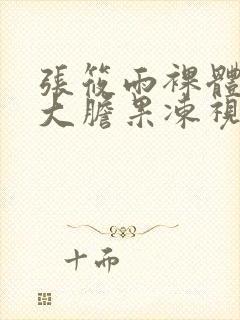 張筱雨裸體
大膽果凍視
十而